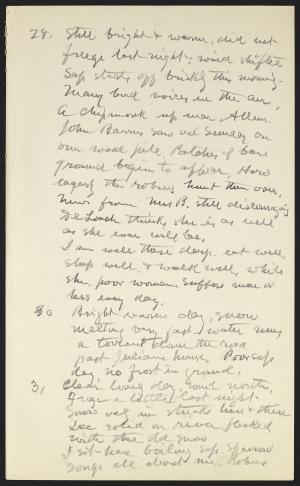 28. Still bright & warm, did not
freeze last night; wind shifted
Sap starts off briskly this morning
Many bird voices in the air,
A chipmunk up near Allens.
John Barns saw owl Sunday on
our wood pile, Patches of bare
ground begin to appear, How
eagerly the robins hunt them over,
News from Mrs B. still discouraging
De Loach thinks she is as well
as she ever will be,
I am well these days. eat well,
sleep well, & walk well, while
she, poor woman suffers more or
less every day.
30 Bright warm day, snow
melting very fast water runs
a torrent down the road
past Julians house, Poor sap
day no frost in ground,
31 Clear lovely day, wind north,
Froze a little last night.
Snow in streaks here & there
Ice solid on river flecked
with the old snow
I sit here boiling sap. Sparrow
songs all about me. Robins